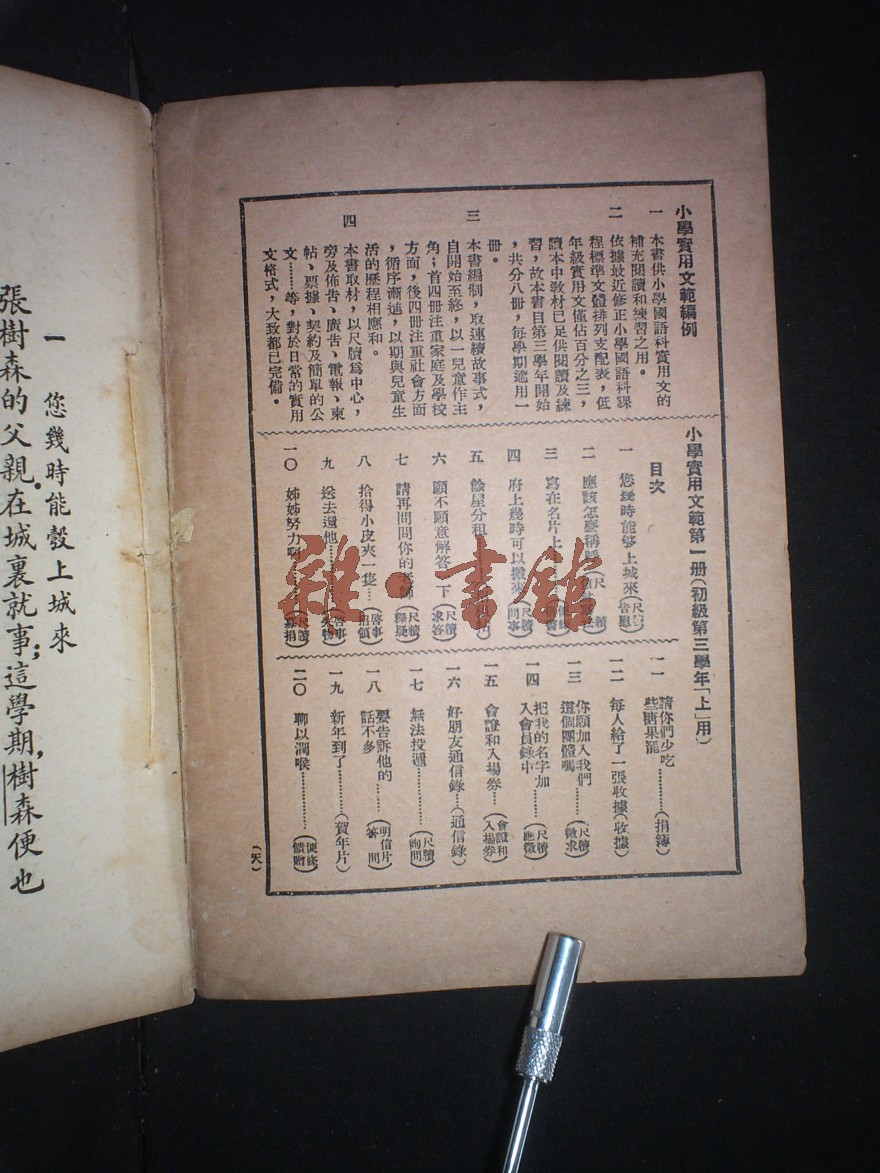 小學實用文範編例
一　本書供小學國語科實用文的
補充閱讀和練習之用。
二　依據最近修正小學國語科課
程標準文體排列支配表，低
年級實用文僅佔百分之三，
讀本中教材已足供閱讀及練
習，故本書自第三學年開始
，共分八冊，每學期適用一
冊。
三　本書編制，取連續故事式，
自開始至終，以一兒童作主
角；首四冊注重家庭及學校
方面，後四冊注重社會方面
，循序漸進，以期與兒童生
活的歷程相應和。
四　本書取材，以尺牘爲中心，
旁及佈告、廣告、電報、柬
帖、票據、契約及簡單的公
文……等，對於日常的實用
文格式，大致都已完備。
小學實用文範第一册(初級第三學年「上」用)
目次
一　您幾時能够上城來(尺牘 告慰)
二　應該怎麽稱呼(尺牘
三　寫在名片上
四　府上幾時可以搬來(尺牘 問事)
五　餘屋分租
六　願不願意解答一下(尺牘 求答)
七　請再問問你的老師(尺牘 釋疑)
八　拾得小皮夾一隻…(啓事 招領)
九　送去還他
一〇　姊姊努力啊
一一　請你們少吃些糖果罷………(捐簿)
一二　每人給了一張收據(收據)
一三　你願加入我們這個團體嗎………(尺牘 徵求)
一四　把我的名字加入會員錄中………(尺牘 應徵)
一五　會證和入場券…(會證和入場券)
一六　好朋友通信錄…(通信錄)
一七　無法投遞………(尺牘 詢問)
一八　要告訴他的話不多………(明信片 答問)
一九　新年到了………(賀年片)
二〇　聊以潤喉………(便條 餽贈)
(天)
一　您幾時能彀上城來
張樹森的父親，在城裏就事；這學期，樹森便也
雜·書館